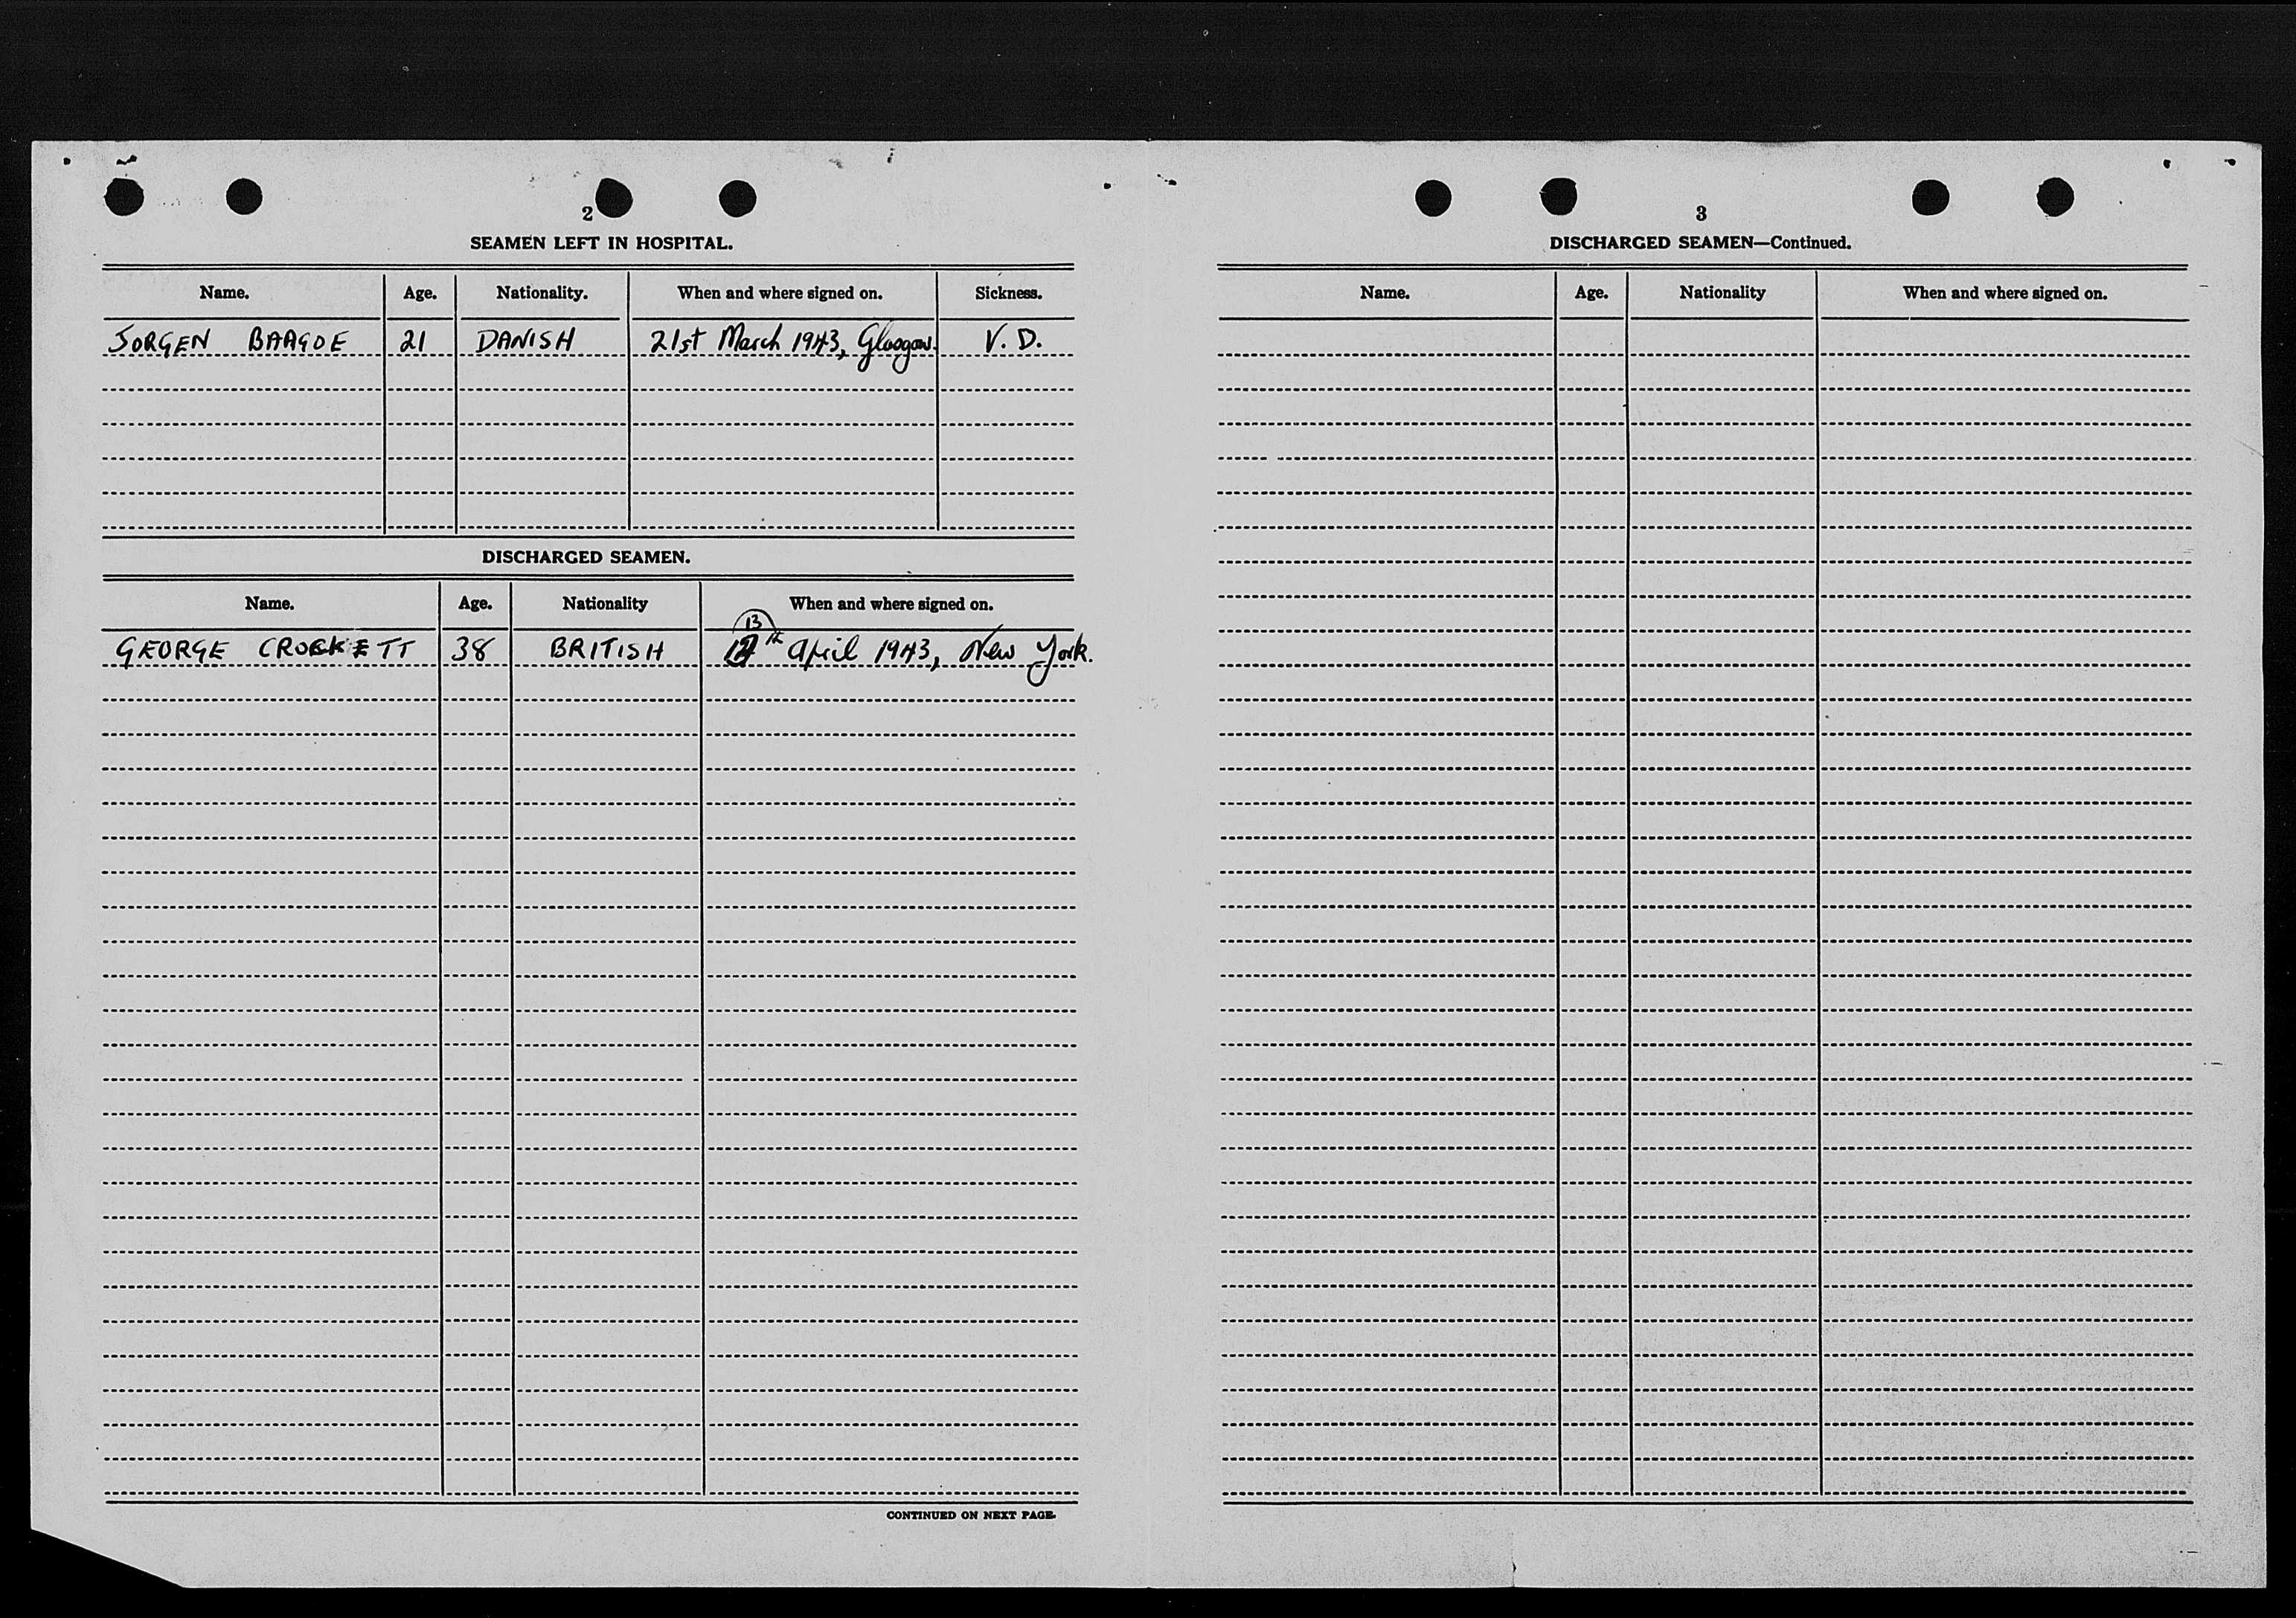 2
SEAMEN LEFT IN HOSPITAL.
Name. Age. Nationality. When and where signed on. Sickness.
JORGEN BAAGOE 21 DANISH 21st March 1943, Glasgow. V. D.
DISCHARGED SEAMEN.
Name. Age. Nationality When and where signed on.
13
GEORGE CROCKETT 38 BRITISH th April 1943, New York.
CONTINUED ON NEXT PAGE.
3
DISCHARGED SEAMEN—Continued.
Name. Age. Nationality When and where signed on.